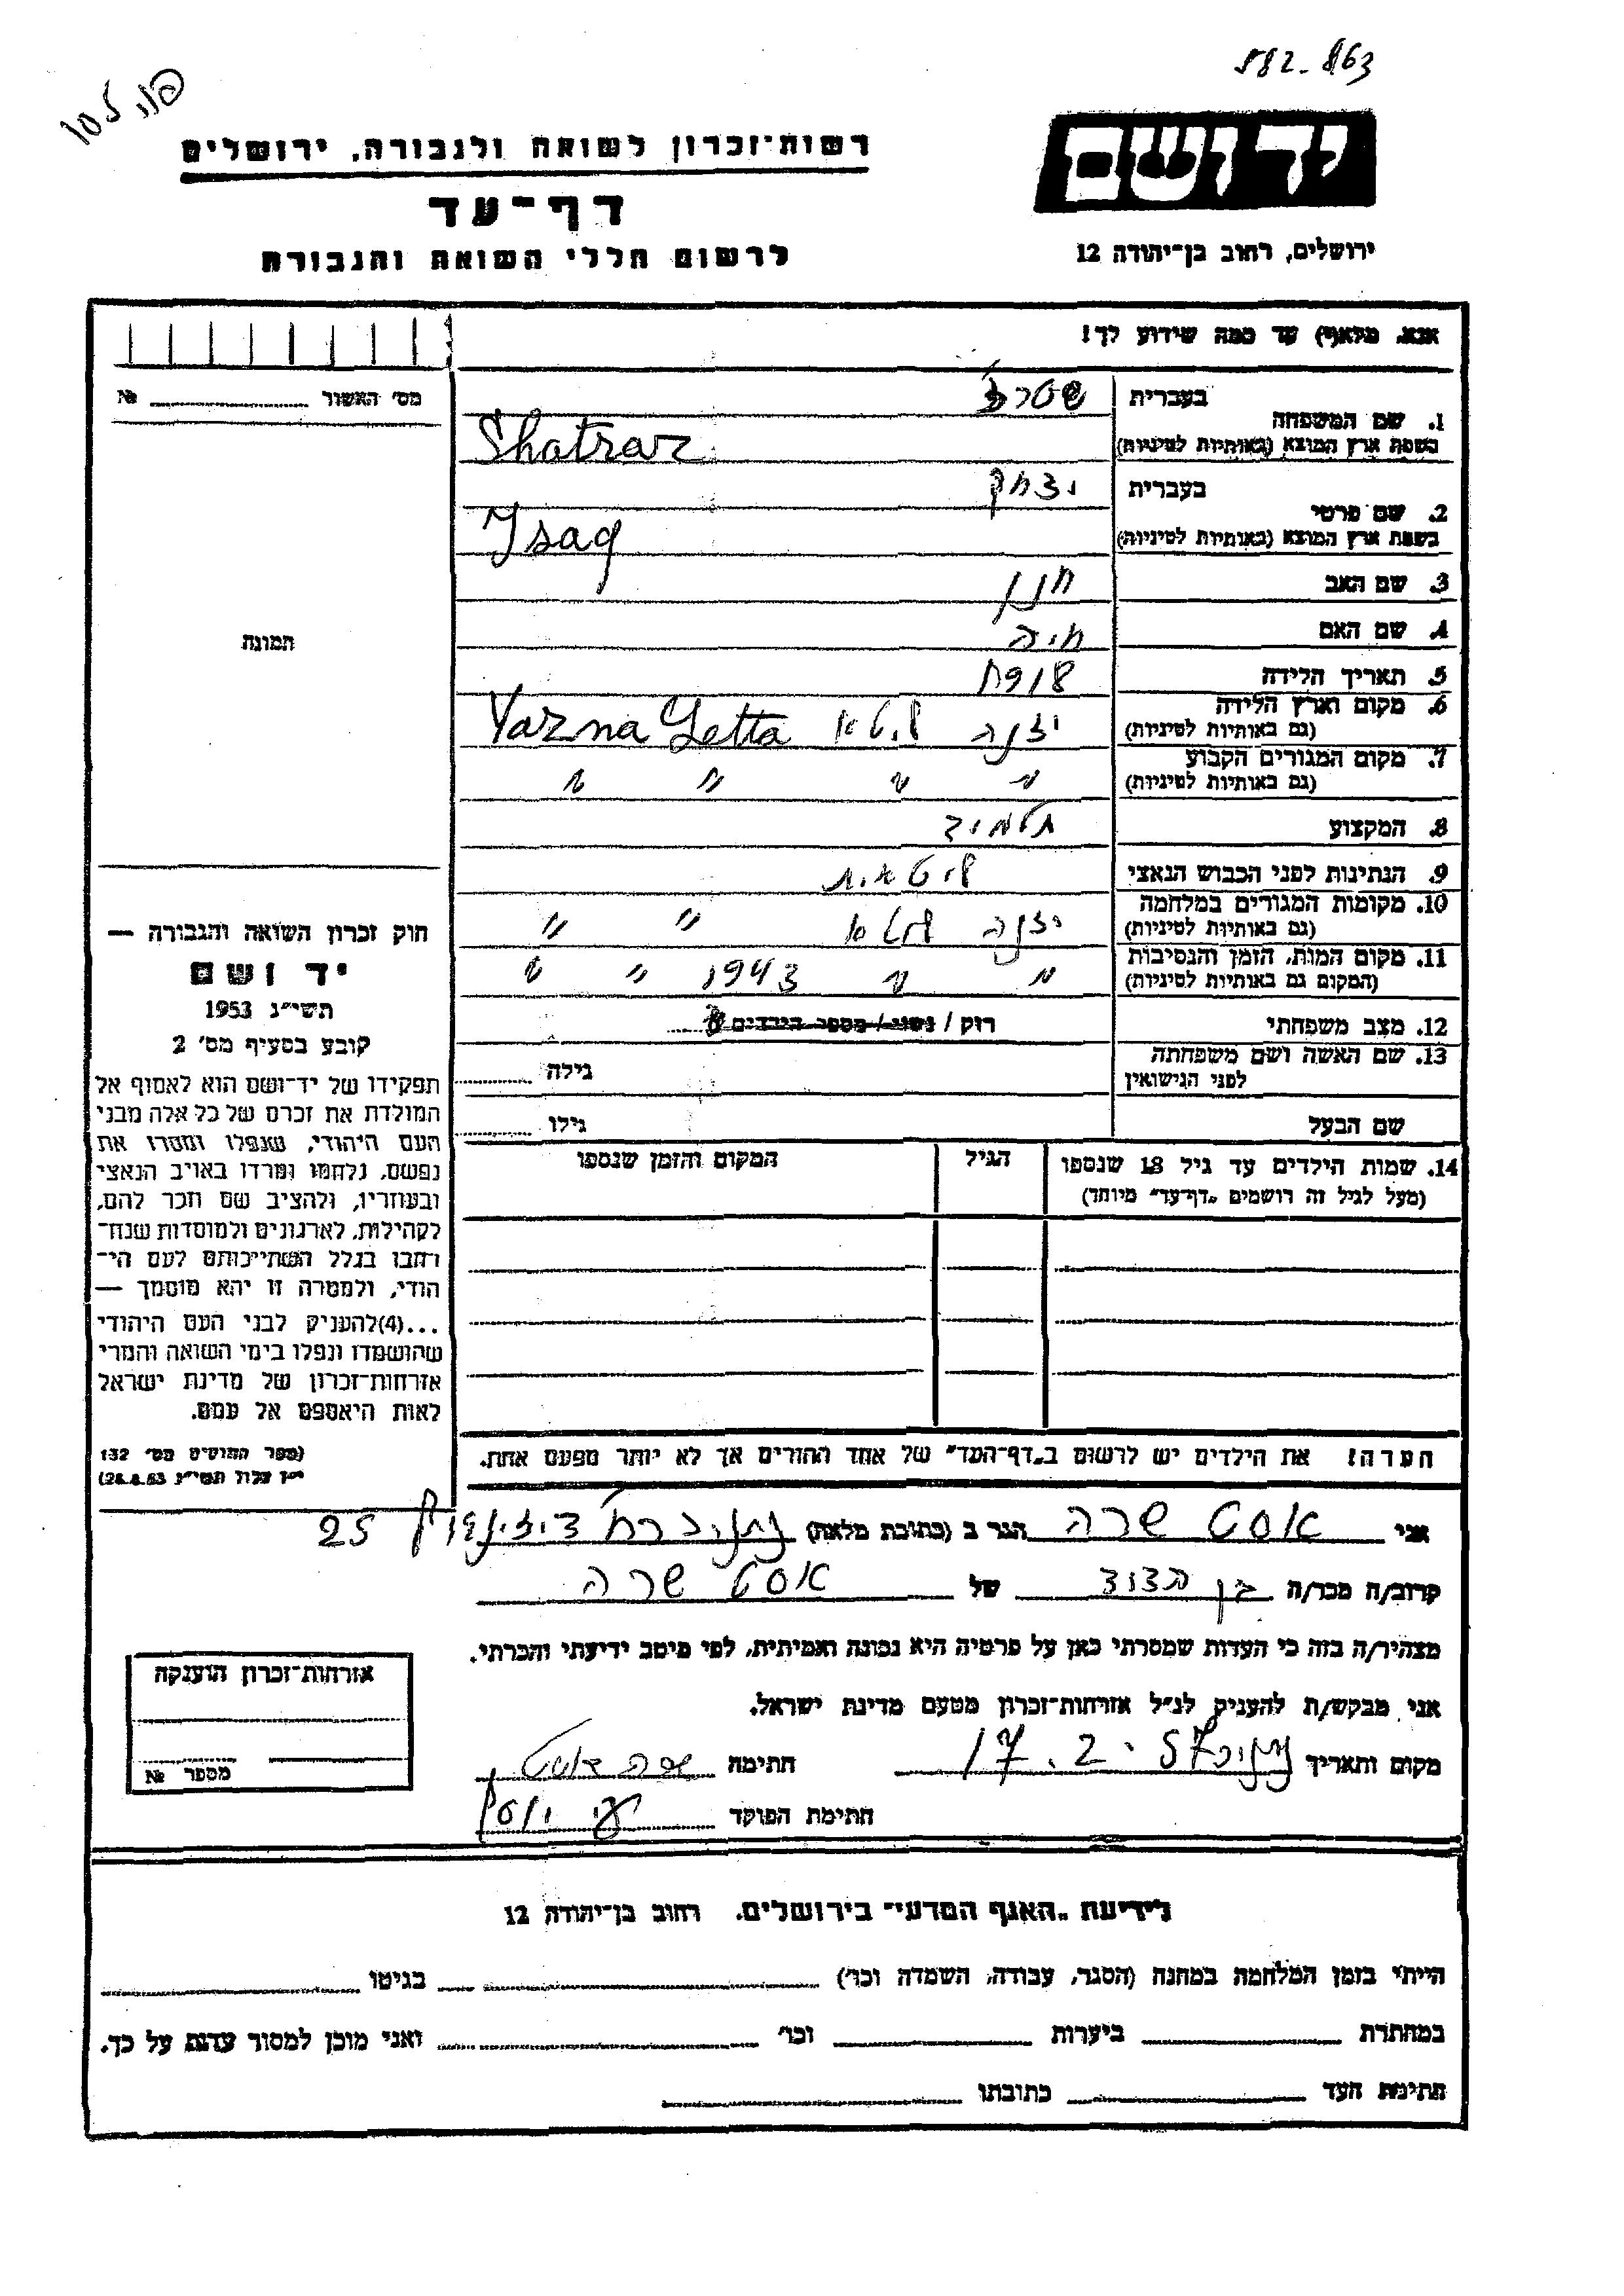 582-863
רשות־זכרון לשואה ולגבורה, ירושלים
יד ושם
דף־עד
לרשום חללי השואה והגבורה
ירושלים, רחוב בן־יהודה 12
אנא, מלא(י) עד כמה שידוע לך!
מס׳ האשור № 
1. שם המשפחה
בעברית
בשפת ארץ המוצא (באותיות לטיניות)
Shatraz
2. שם פרטי
בעברית יצחק
בשפת ארץ המוצא (באותיות לטיניות)
Isaq
3. שם האב חנן
4. שם האם חיה
5. תאריך הלידה 1918
6. מקום וארץ הלידה
(גם באותיות לטיניות) יזנה ליטא Yazna Letta
7. מקום המגורים הקבוע
(גם באותיות לטיניות) " " " "
8. המקצוע תלמיד
9. הנתינות לפני הכבוש הנאצי ליטאית
10. מקומות המגורים במלחמה
(גם באותיות לטיניות) יזנה ליטא " "
11. מקום המות, הזמן והנסיבות
(המקום גם באותיות לטיניות) " " 1943 " "
12. מצב משפחתי רוק / נשוי / מספר הילדים
13. שם האשה ושם משפחתה
לפני הנישואין גילה
שם הבעל גילו
14. שמות הילדים עד גיל 18 שנספו הגיל המקום והזמן שנספו
(מעל לגיל זה רושמים „דף־עד״ מיוחד)
הערה! את הילדים יש לרשום ב„דף־העד״ של אחד ההורים אך לא יותר מפעם אחת.
תמונה
חוק זכרון השואה והגבורה —
יד ושם
תשי״ג 1953
קובע בסעיף מס׳ 2
תפקידו של יד־ושם הוא לאסוף אל
המולדת את זכרם של כל אלה מבני
העם היהודי, שנפלו ומסרו את
נפשם, נלחמו ומרדו באויב הנאצי
ובעוזריו, ולהציב שם וזכר להם,
לקהילות, לארגונים ולמוסדות שנח־
רבו בגלל השתייכותם לעם הי־
הודי, ולמטרה זו יהא מוסמך —
...(4)להעניק לבני העם היהודי
שהושמדו ונפלו בימי השואה והמרי
אזרחות־זכרון של מדינת ישראל
לאות היאספם אל עמם.
(ספר החוקים מס׳ 132
י״ז אלול תשי״ג 28.8.53)
אני אוסט שרה הגר ב (כתובת מלאה) 25
קרוב/ה מכר/ה בן הדוד של אוסט שרה
מצהיר/ה בזה כי העדות שמסרתי כאן על פרטיה היא נכונה ואמיתית, לפי מיטב ידיעתי והכרתי.
אני מבקש/ת להעניק לנ״ל אזרחות־זכרון מטעם מדינת ישראל.
מקום ותאריך 17.2.57 חתימה שרה אוסט
חתימת הפוקד
אזרחות־זכרון הוענקה
מספר №
לידיעת „האגף המדעי״ בירושלים. רחוב בן־יהודה 12
הייתי בזמן המלחמה במחנה (הסגר, עבודה, השמדה וכו׳) בגיטו
במחתרת ביערות וכו׳ ואני מוכן למסור עדות על כך.
חתימת העד כתובתו